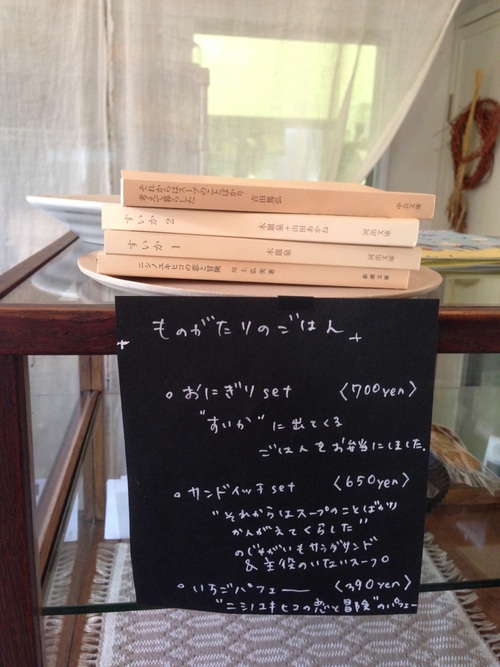 それからはスープのことばかり
考えて暮らした 吉田篤弘 中公文庫
すいか 2 木皿泉+山田あかね 河出文庫
すいか 1 木皿泉 河出文庫
ニシノユキヒコの恋と冒険 川上弘美著 新潮文庫
ものがたりのごはん
おにぎりset 〈700yen〉
"すいか"に出てくる
ごはんをお弁当にしました。
サンドイッチset 〈650yen〉
"それからはスープのことばかり
かんがえてくらした"
のじゃがいもサラダサンド
&主役のいたいスープ
いちごパフェー 〈390yen〉
"ニシノユキヒコの恋と冒険"のパフェー